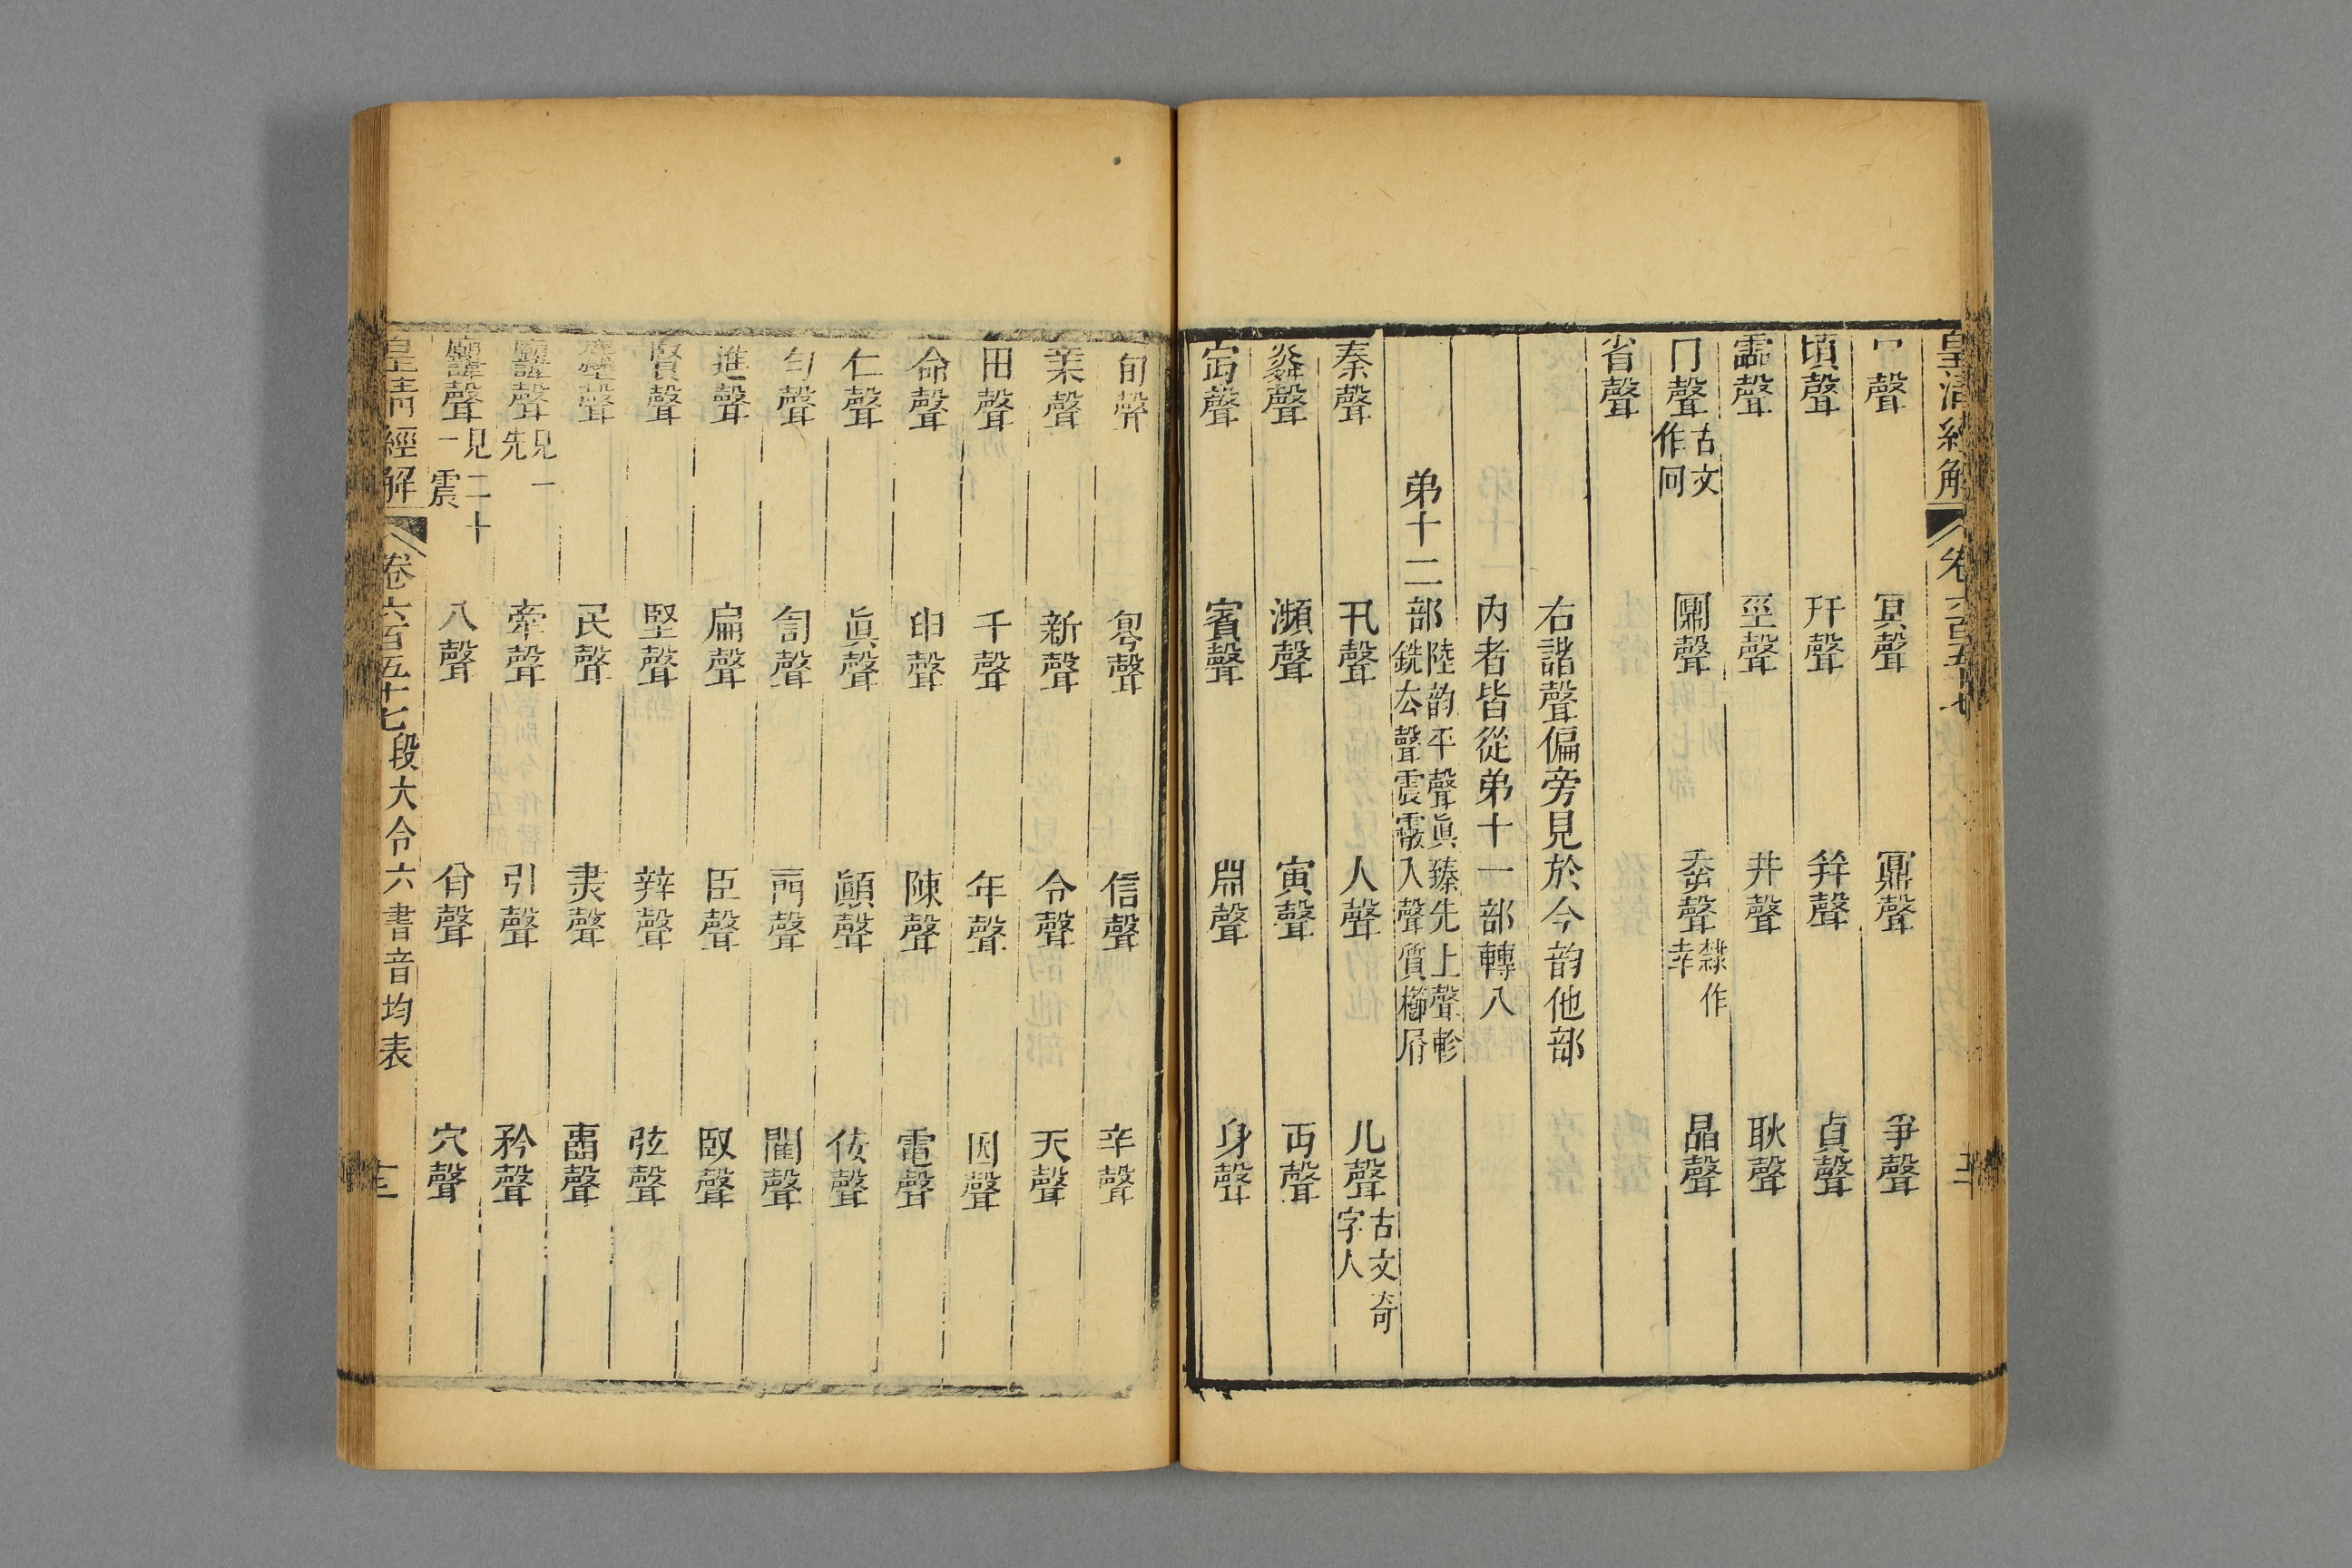 皇清經解 卷六百五十七
冖聲 冥聲 鼏聲 爭聲
頃聲 幵聲 幷聲 貞聲
霝聲 巠聲 井聲 耿聲
冂聲 古文作冋 鼏聲 㚔聲 隸作幸 晶聲
省聲
右諧聲偏旁見於今韵他部
內者皆從弟十一部轉入
弟十二部 陸韵平聲眞臻先上聲軫銑去聲震霰入聲質櫛屑
秦聲 卂聲 人聲 儿聲 古文奇字人
粦聲 瀕聲 寅聲 丏聲
𡧍聲 賓聲 淵聲 身聲
旬聲 㫬聲 信聲 辛聲
亲聲 新聲 令聲 天聲
田聲 千聲 年聲 因聲
命聲 申聲 陳聲 電聲
仁聲 眞聲 顚聲 佞聲
勻聲 訇聲 㒳聲 閵聲
進聲 扁聲 臣聲 臤聲
賢聲 堅聲 辡聲 弦聲
塵聲 民聲 聿聲
廟諱聲 見一先 牽聲 引聲 矜聲
廟諱聲 見二十一震 八聲 㕣聲 穴聲
皇清經解 卷六百五十七 段大令六書音均表 十三